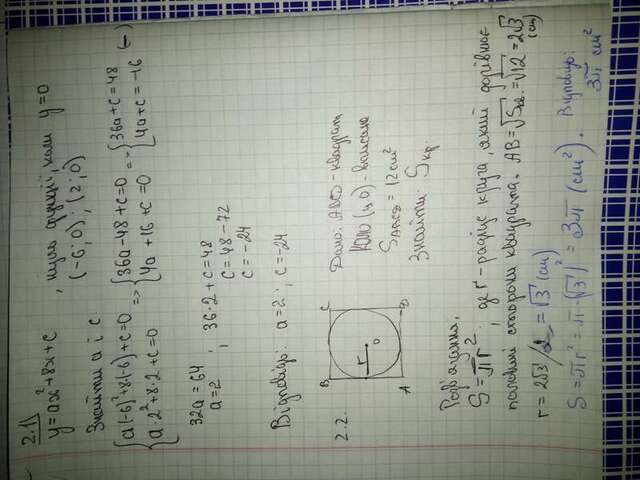 2.1)
y=ax²+8x+c , нулі функції, коли y=0
(-6;0) ; (2;0)
Знайти a і c.
{a(-6)²+8·(-6)+c=0 => {36a-48+c=0 => {36a+c=48
a·2²+8·2+c=0 4a+16+c=0 4a+c=-16 (-)
32a=64
a=2 ; 36·2+c=48
c=48-72
c=-24
Відповідь: a=2 ; c=-24
2.2.
B C
r
O
A D
Дано: ABCD-квадрат
Коло (r;O)-вписане
S_ABCD=12cm²
Знайти: Sкр.
Розв'язання.
S=πr² ; де r-радіус круга, який дорівнює
половині сторони квадрата. AB=√Sкв.=√12=2√3 (cm)
r=2√3/2=√3 (cm)
S=πr²=π·(√3)²=3π (cm²). Відповідь:
3π cm²